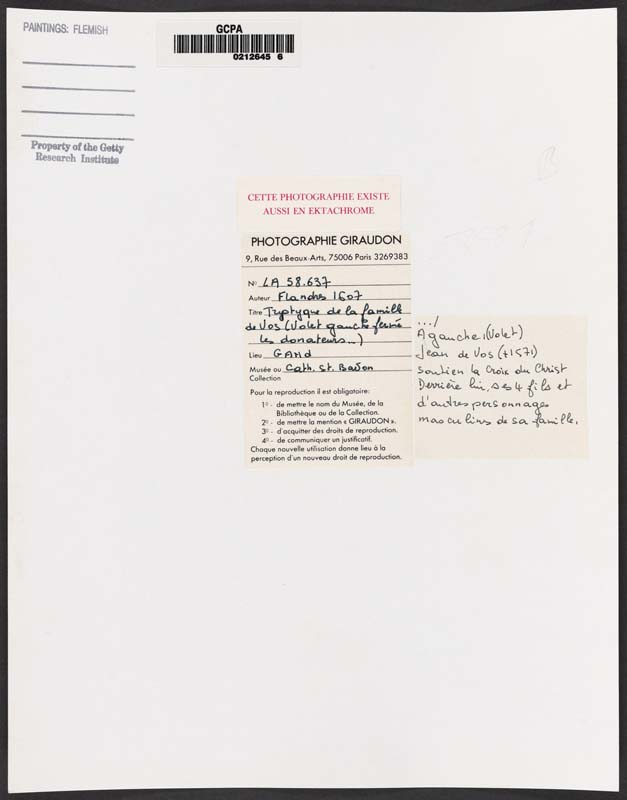 PAINTINGS: FLEMISH
Property of the Getty
Research Institute
GCPA
0212645 6
CETTE PHOTOGRAPHIE EXISTE
AUSSI EN EKTACHROME
PHOTOGRAPHIE GIRAUDON
9, Rue des Beaux-Arts, 75006 Paris 3269383
No LA 58.637
Auteur Flandres 1607
Titre Tryptyque de la famille
de Vos (Volet gauche fermé
les donateurs...)
Lieu GAND
Musée ou Cath. St. Bavon
Collection
Pour la reproduction il est obligatoire:
1o - de mettre le nom du Musée, de la
Bibliothèque ou de la Collection.
2o - de mettre la mention « GIRAUDON ».
3o - d'acquitter des droits de reproduction.
4o - de communiquer un justificatif.
Chaque nouvelle utilisation donne lieu à la
perception d'un nouveau droit de reproduction.
.../
A gauche, (Volet)
Jean de Vos (+1571)
soutien la Croix du Christ
Derrière lui, ses 4 fils et
d'autres personnages
masculins de sa famille.